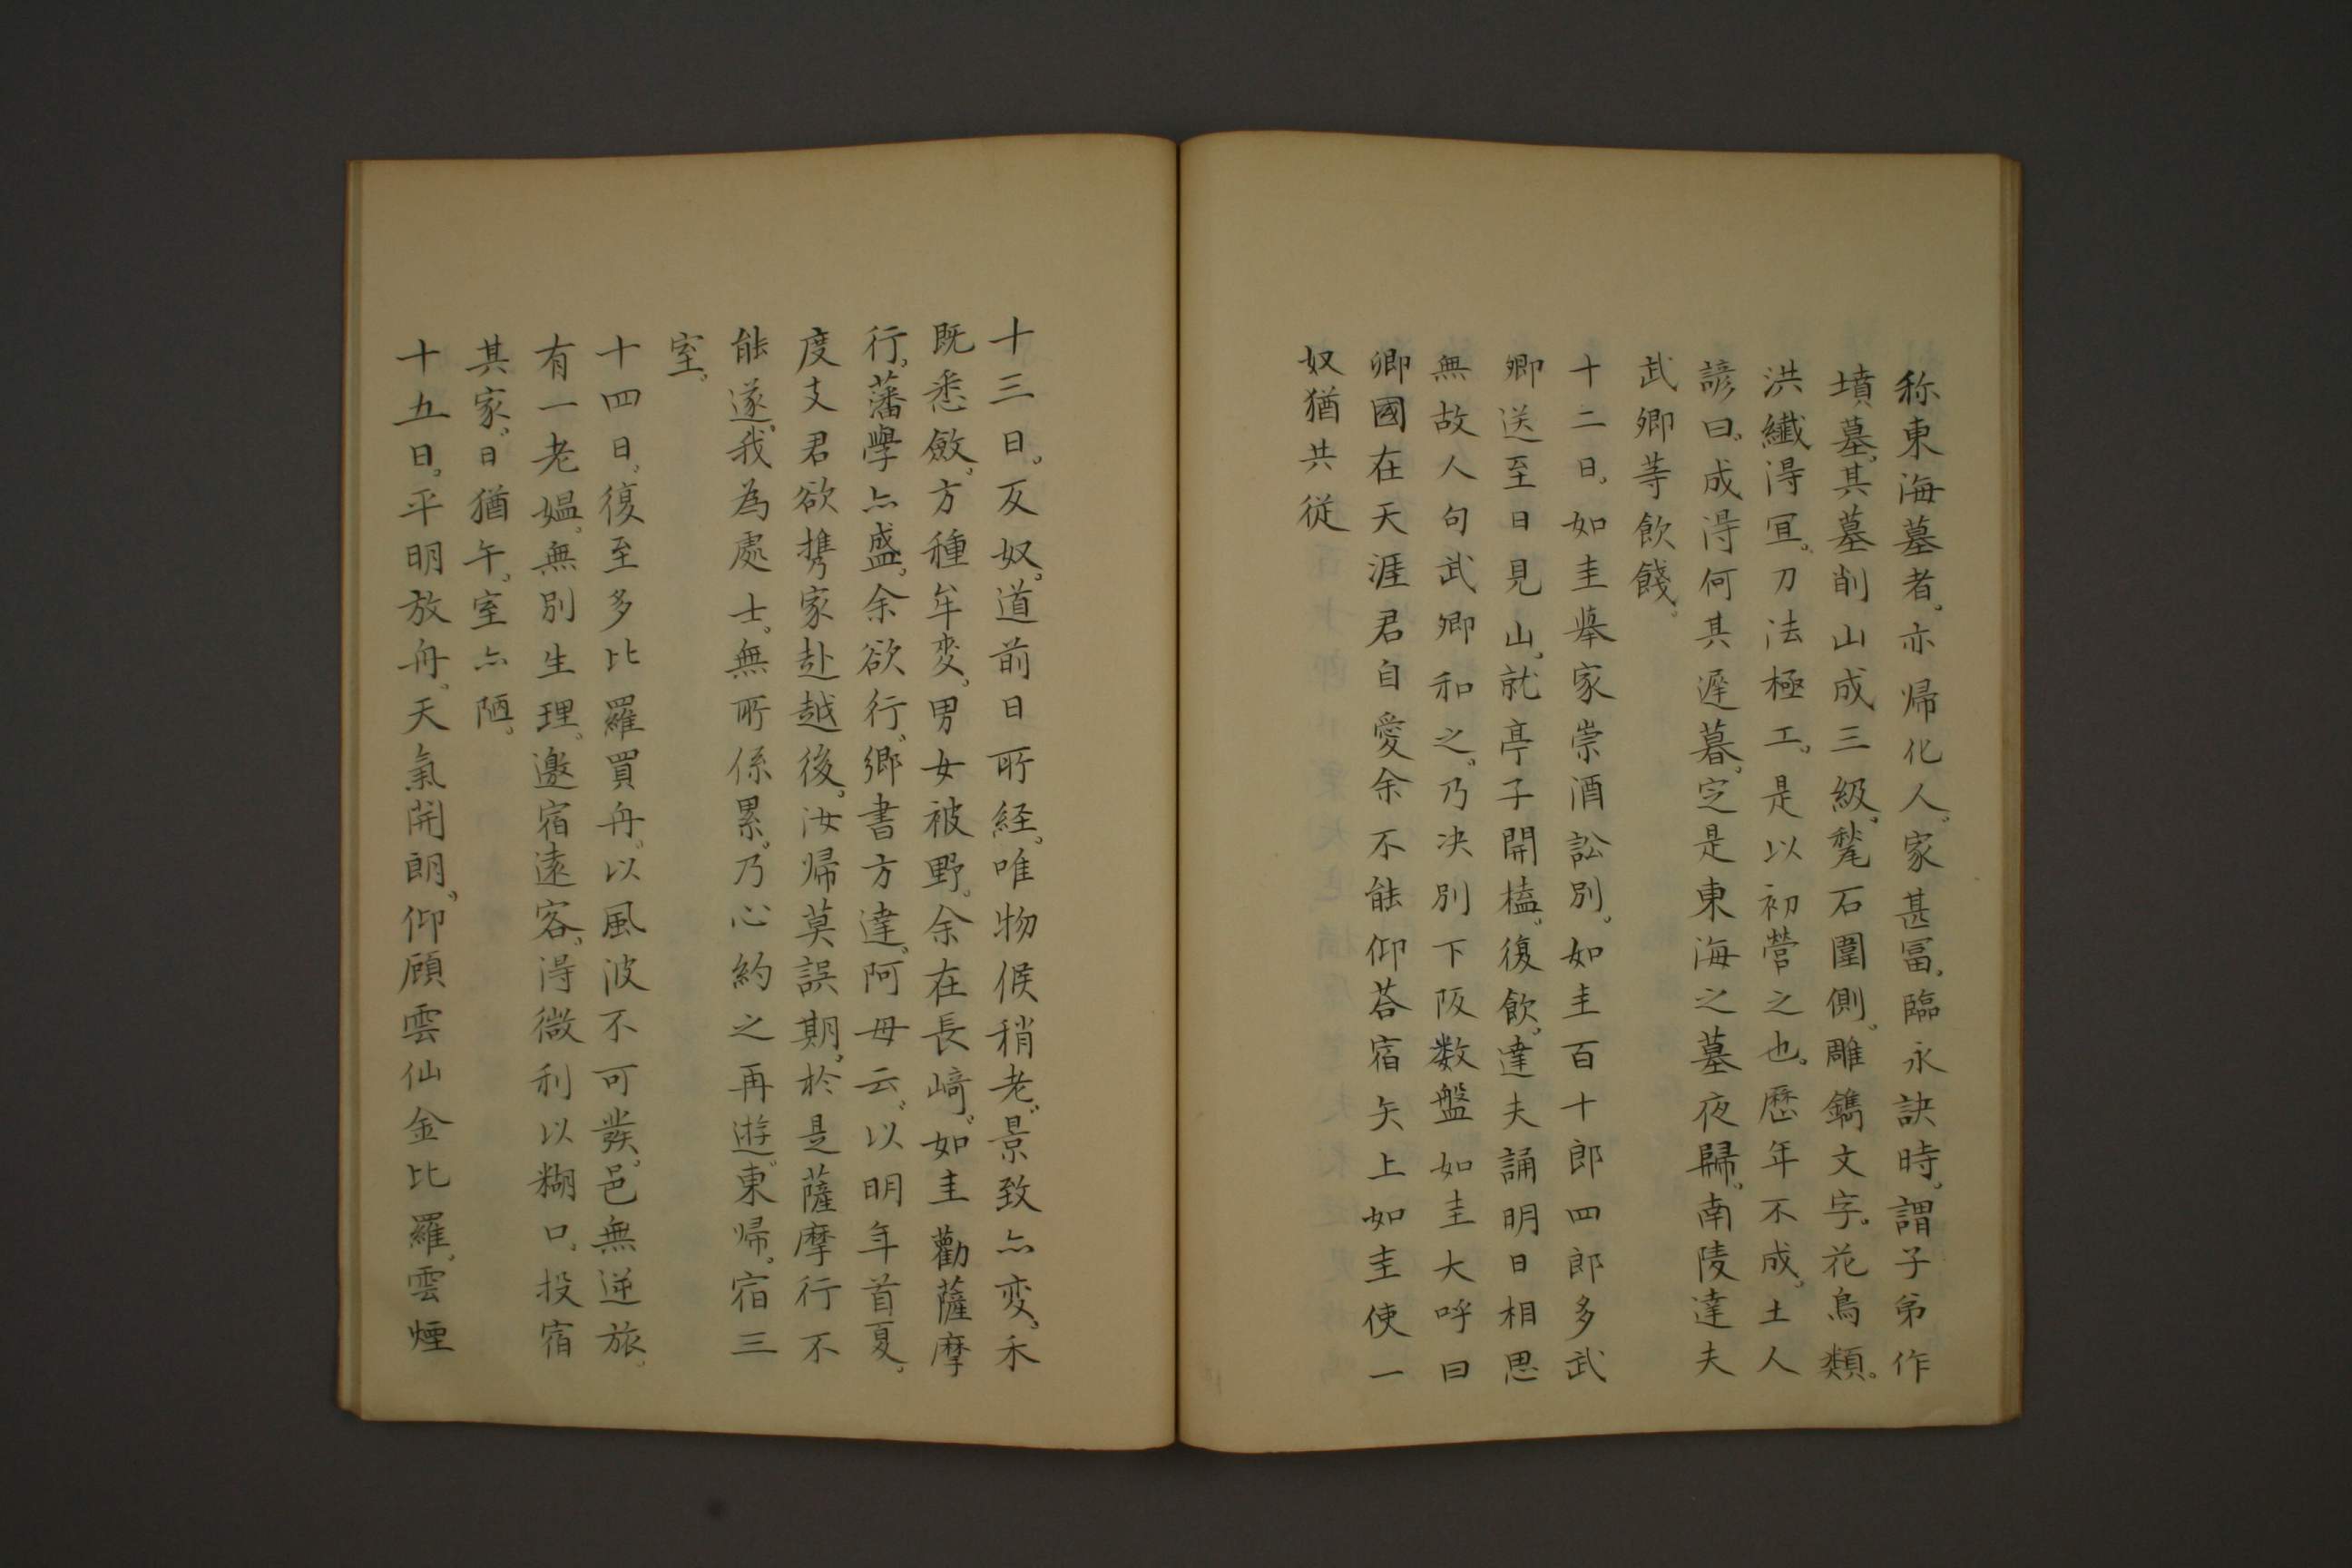 称東海墓者。亦帰化人。家甚冨。臨永訣時。謂子弟作
墳墓。其墓削山成三級。甃石圍側。雕鐫文字。花鳥類。
洪纎淂冝。刀法極工。是以初營之也。歷年不成。土人
諺曰。成淂何其遅暮。定是東海之墓夜歸。南陵達夫
武卿等飲餞。
十二日。如圭擧家崇酒訟別。如圭百十郎四郎多武
卿送至日見山。就亭子開榼。復飲。達夫誦明日相思
無故人句武卿和之。乃决別下阪数盤如圭大呼曰
卿國在天涯君自愛余不能仰荅宿矢上如圭使一
奴猶共従
十三日。反奴。道前日所経。唯物候稍老。景致亦変。禾
既悉斂。方種牟麦。男女被野。余在長﨑。如圭勸薩摩
行。藩學亦盛。余欲行。鄉書方達。阿母云。以明年首夏。
度支君欲携家赴越後。汝帰莫誤期。於是薩摩行不
能遂。我為處士。無所係累。乃心約之再遊。東帰。宿三
室。
十四日。復至多比羅買舟。以風波不可發。邑無逆旅。
有一老媼。無別生理。邀宿遠客。淂微利以糊口。投宿
其家。日猶午。室亦陋。
十五日。平明放舟。天氣開朗。仰顧雲仙金比羅。雲煙